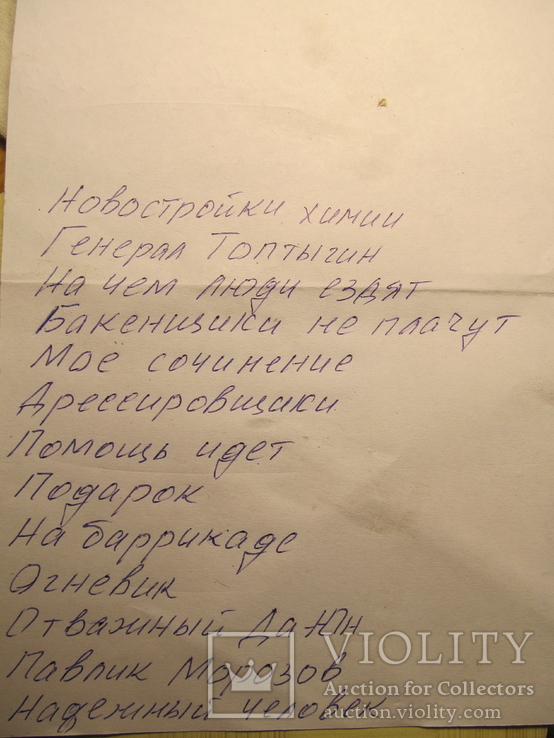 Новостройки химии
Генерал Топтыгин
На чем люди ездят
Бакенщики не плачут
Мое сочинение
Дрессировщики
Помощь идет
Подарок
На баррикаде
Огневик
Отважный Да Юн
Павлик Морозов
Надежный человек
VIOLITY
Auction for Collectors
auction.violity.com